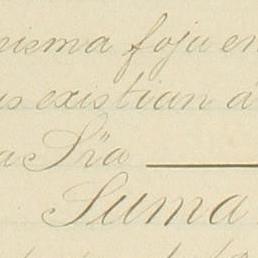 misma foja en
us existian á
a Sra
Suma